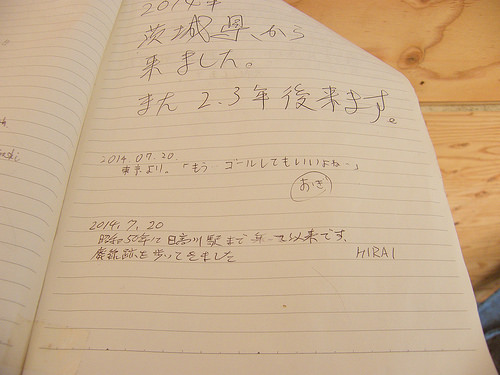 2014年
茨城県から
来ました。
また 2.3年後来ます。
2014.07.20.
東京より。「もう ゴールしてもいいよね…」
あぎ
2014.7.20
昭和50年に日高川駅まで乗って以来です。
廃線跡を歩ってきました
HIRAI